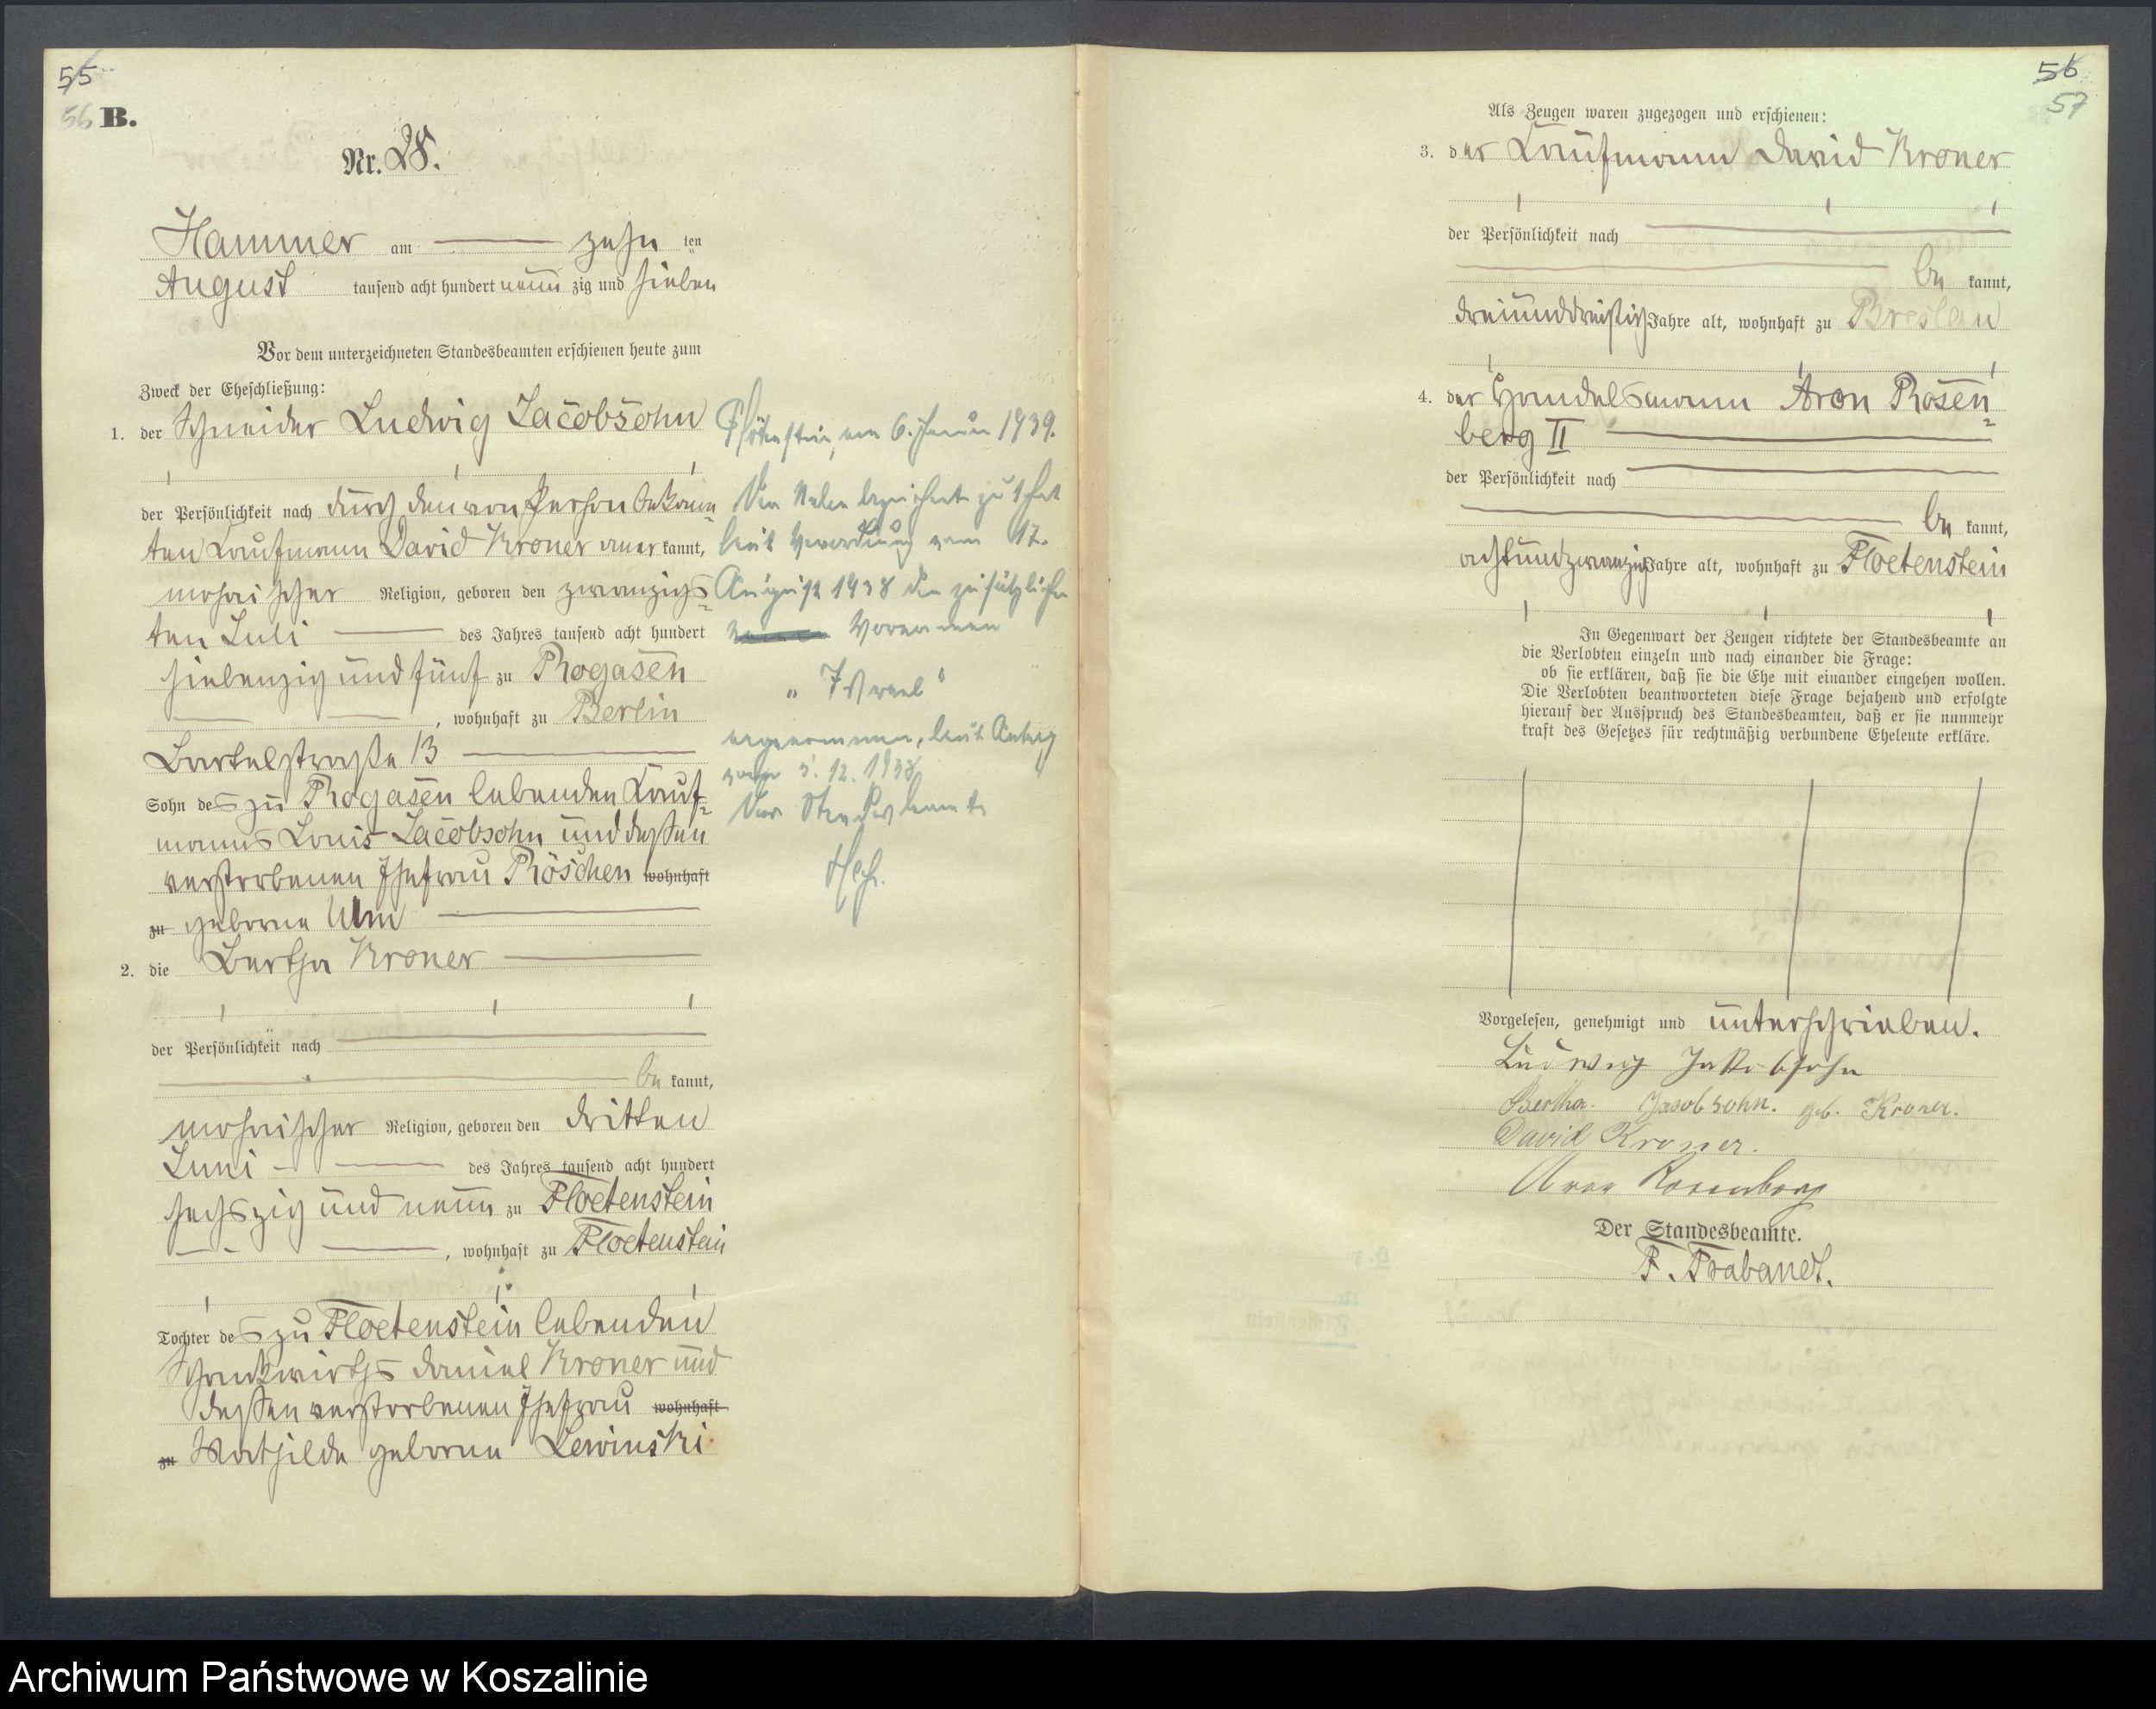 55
56 B.
Nr. 28.
Hammer am zehn ten
August tausend acht hundert neun zig und sieben
Vor dem unterzeichneten Standesbeamten erschienen heute zum
Zweck der Eheschließung:
1. der Schneider Ludwig Jacobsohn
der Persönlichkeit nach durch den von Person bekann-
ten Kaufmann David Kroner aner kannt,
mosaischer Religion, geboren den zwanzigs-
ten Juli des Jahres tausend acht hundert
siebenzig und fünf zu Rogasen
, wohnhaft zu Berlin
Bartelstraße 13
Sohn des zu Rogasen lebenden Kauf-
manns Louis Jacobsohn und dessen
verstorbenen Ehefrau Röschen wohnhaft
zu geborne Ulm
2. die Bertha Kroner
der Persönlichkeit nach
be kannt,
mosaischer Religion, geboren den dritten
Juni des Jahres tausend acht hundert
sechszig und neun zu Floetenstein
, wohnhaft zu Floetenstein
Tochter des zu Floetenstein lebenden
Schankwirths Daniel Kroner und
dessen verstorbenen Ehefrau wohnhaft
zu Mathilde geborne Lewinski
Flötenstein, am 6. Januar 1939.
Der Neben bezeichnete zu 1 hat
laut Verordnung vom 17.
August 1938 den zusätzlichen
Vornamen
„Israel“
angenommen, laut Antrag
vom 5. 12. 1938
Der Standesbeamte
56
57
Als Zeugen waren zugezogen und erschienen:
3. der Kaufmann David Kroner
der Persönlichkeit nach
be kannt,
dreiunddreißig Jahre alt, wohnhaft zu Breslau
4. der Handelsmann Aron Rosen-
berg II
der Persönlichkeit nach
be kannt,
achtundzwanzig Jahre alt, wohnhaft zu Floetenstein
In Gegenwart der Zeugen richtete der Standesbeamte an
die Verlobten einzeln und nach einander die Frage:
ob sie erklären, daß sie die Ehe mit einander eingehen wollen.
Die Verlobten beantworteten diese Frage bejahend und erfolgte
hierauf der Ausspruch des Standesbeamten, daß er sie nunmehr
kraft des Gesetzes für rechtmäßig verbundene Eheleute erkläre.
Vorgelesen, genehmigt und unterschrieben.
Ludwig Jakobsohn
Bertha Jacobsohn. geb. Kroner.
David Kroner.
Aron Rosenberg
Der Standesbeamte.
F. Brabandt.
Archiwum Państwowe w Koszalinie